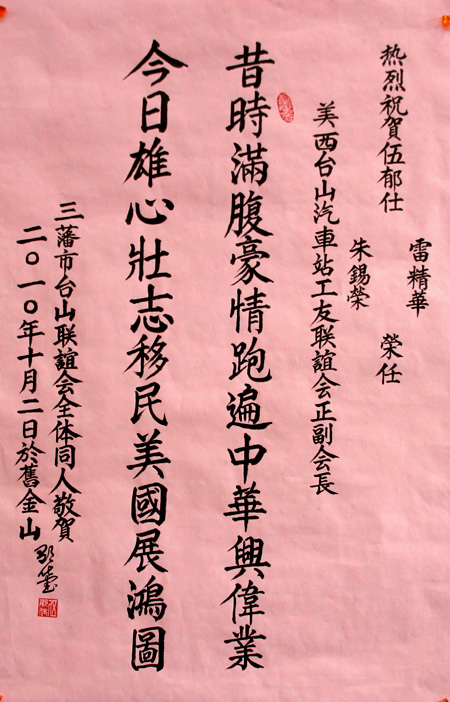 热烈祝贺伍郁仕
雷精華
朱錫荣
榮任
美西台山汽車站工友联誼会正副会長
昔時滿腹豪情跑遍中華興偉業
今日雄心壯志移民美國展鴻圖
三藩市台山联誼会全体同人敬賀
二〇一〇年十月二日於舊金山